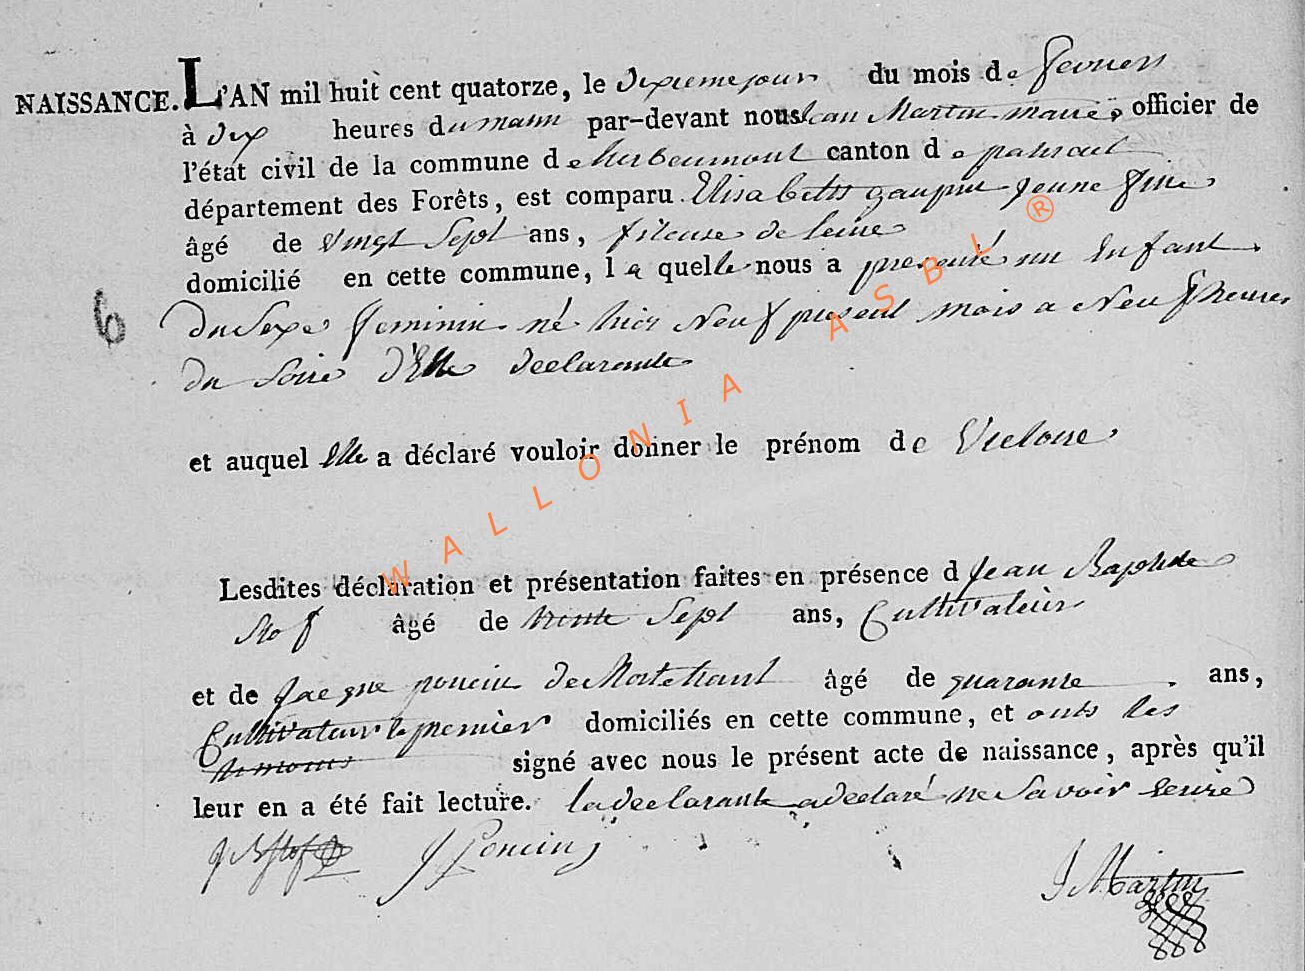 NAISSANCE. L'AN mil huit cent quatorze, le dixieme jour du mois de fevrier
à dix heures du matin par-devant nous Jean Martin maire officier de
l'état civil de la commune de herbeumont canton de paliseul
département des Forêts, est comparu Elisabeth gaupin jeune fille
âgé de vingt Sept ans, fileuse de leine
domicilié en cette commune, la quelle nous a presenté un Enfant
6 du Sexe feminin né hier Neuf present mois a Neuf heures
du Soire d'Elle declarante
et auquel Elle a déclaré vouloir donner le prénom de Victoire
Lesdites déclaration et présentation faites en présence d Jean Baptiste
Stof âgé de trente Sept ans, Cultivateur
et de Jacque poncin de Mortehant âgé de quarante ans,
Cultivateur le premier domiciliés en cette commune, et onts les
temoins signé avec nous le présent acte de naissance, après qu'il
leur en a été fait lecture. la declarante a declaré ne Savoir ecrire
J B Stof J Poncin J Martin
WALLONIA ASBL ®